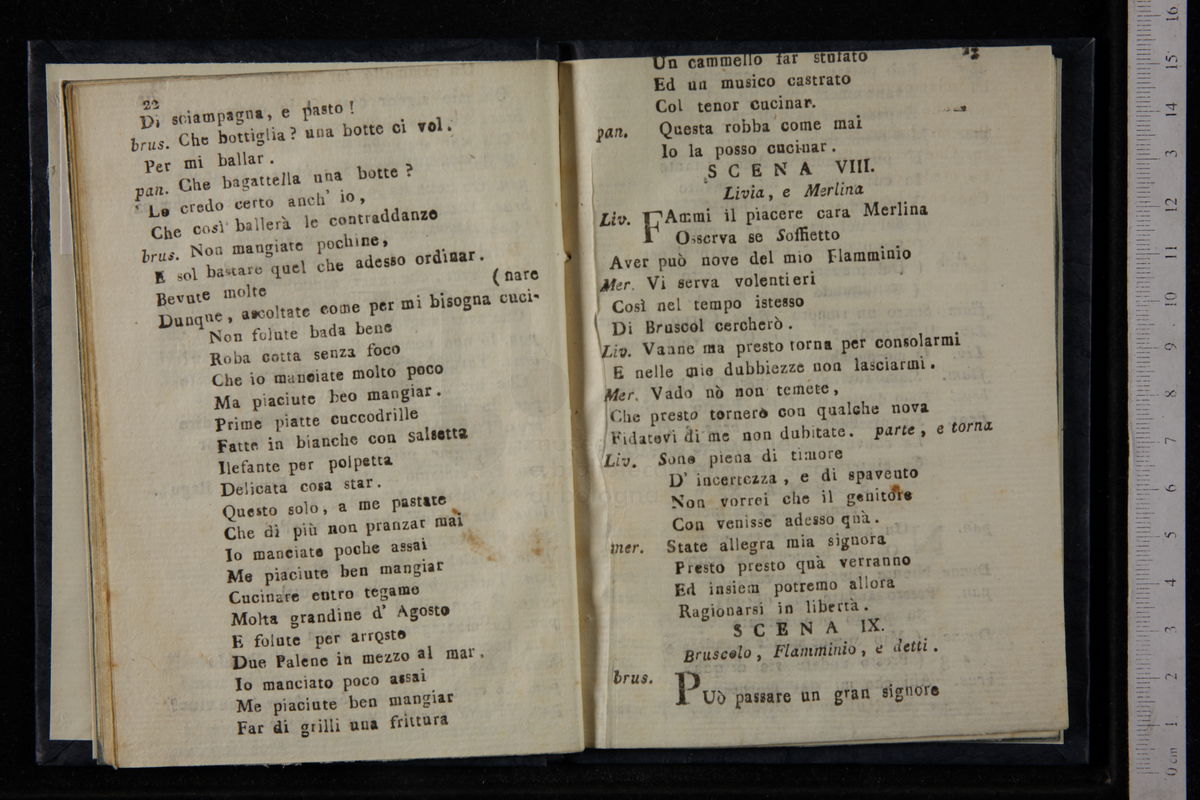 22
Di sciampagna, e pasto!
brus. Che bottiglia? una botte ci vol.
Per mi ballar.
pan. Che bagattella una botte?
Lo credo certo anch' io,
Che così ballerà le contraddanze
brus. Non mangiate pochine,
E sol bastare quel che adesso ordinar.
Bevute molte (nare
Dunque, ascoltate come per mi bisogna cuci-
Non folute bada bene
Roba cotta senza foco
Che io manciate molto poco
Ma piaciute beo mangiar.
Prime piatte cuccodrille
Fatte in bianche con salsetta
Ilefante per polpetta
Delicata cosa star.
Questo solo, a me pastate
Che di più non pranzar mai
Io manciate poche assai
Me piaciute ben mangiar
Cucinare entro tegame
Molta grandine d' Agosto
E folute per arrosto
Due Palene in mezzo al mar.
Io manciato poco assai
Me piaciute ben mangiar
Far di grilli una frittura
Un cammello far stufato
Ed un musico castrato
Col tenor cucinar.
pan. Questa robba come mai
Io la posso cucinar.
SCENA VIII.
Livia, e Merlina
Liv. FAmmi il piacere cara Merlina
Osserva se Soffietto
Aver può nove del mio Flamminio
Mer. Vi serva volentieri
Così nel tempo istesso
Di Bruscol cercherò.
Liv. Vanne ma presto torna per consolarmi
E nelle mie dubbiezze non lasciarmi.
Mer. Vado nò non temete,
Che presto tornerò con qualche nova
Fidatevi di me non dubitate. parte, e torna
Liv. Sono piena di timore
D' incertezza, e di spavento
Non vorrei che il genitore
Con venisse adesso quà.
mer. State allegra mia signora
Presto presto quà verranno
Ed insiem potremo allora
Ragionarsi in libertà.
SCENA IX.
Bruscolo, Flamminio, e detti.
brus. PUò passare un gran signore